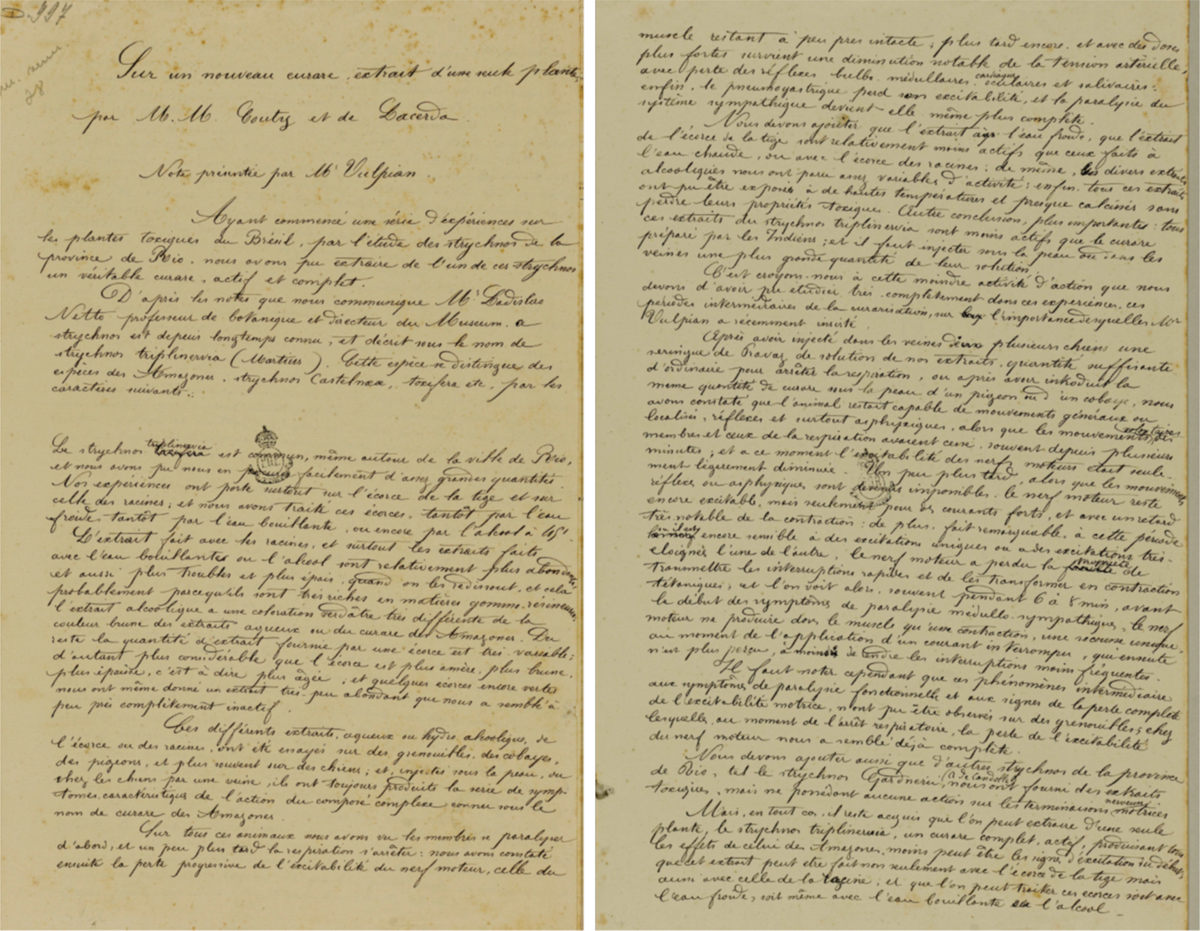 D-997
Sur un nouveau curare, extrait d'une seule plante,
par M. M. Couty et de Lacerda.
Note présentée par Mr Vulpian
Ayant commencé une série d'expériences sur
les plantes toxiques du Brésil, par l'étude des strychnos de la
province de Rio, nous avons pu extraire de l'un de ces strychnos
un véritable curare, actif et complet.
D'après les notes que nous communique Mr Ladislao
Netto professeur de botanique et directeur du Museum, a
strychnos est depuis longtemps connu, et décrit sous le nom de
strychnos triplinervia (Martius). Cette espèce se distingue des
espèces des Amazones, strychnos Castelnæa, toxifera etc, par les
caractères suivants:
Le strychnos triplinervia est commun, même autour de la ville de Rio,
et nous avons pu nous en facilement d'assez grandes quantités.
Nos expériences ont porté surtout sur l'écorce de la tige et sur
celle des racines; et nous avons traité ces écorces, tantôt par l'eau
froide, tantôt par l'eau bouillante, ou encore par l'alcool à
L'extrait fait avec les racines, et surtout les extraits faits
avec l'eau bouillante ou l'alcool sont relativement plus abondants,
et aussi plus troubles et plus épais quand on les redissout, et cela
probablement parcequ'ils sont très riches en matières gommo-résineuses,
l'extrait alcoolique a une coloration verdâtre très différente de la
couleur brune des extraits aqueux ou du curare des Amazones. Du
reste la quantité d'extrait fournie par une écorce est très variable;
d'autant plus considérable que l'écorce est plus amère, plus brune,
plus épaisse, c'est à dire plus âgée, et quelques écorces encore vertes
nous ont même donné un extrait très peu abondant que nous a semblé à
peu près complètement inactif.
Ces différents extraits, aqueux ou hydro-alcooliques, de
l'écorce ou des racines, ont été essayés sur des grenouilles, des cobayes,
des pigeons, et plus souvent sur des chiens; et, injectés sous la peau, ou
chez les chiens par une veine, ils ont toujours produits la série de symp-
tômes caractéristiques de l'action du composé complexe connu sous le
nom de curare des Amazones
Sur tous ces animaux nous avons vu les membres se paralyser
d'abord, et un peu plus tard la respiration s'arrêter: nous avons constaté
ensuite la perte progressive de l'excitabilité du nerf moteur, celle du
muscle restant à peu près intacte; plus tard encore, et avec des doses
plus fortes survient une diminution notable de la tension artérielle,
avec perte des réflexes bulbo-médullaires cardiaques oculaires et salivaires:
enfin, le pneumogastrique perd son excitabilité, et la paralysie du
système sympathique devient elle même plus complète.
Nous devons ajouter que l'extrait à l'eau froide, que l'extrait
de l'écorce de la tige sont relativement moins actifs que ceux faits à
l'eau chaude, ou avec l'écorce des racines: de même, les divers extraits
alcooliques nous ont paru assez variables d'activité; enfin, tous ces extraits
ont pu être exposés à de hautes températures et presque calcinés sans
perdre leurs propriétés toxiques. Autre conclusion, plus importante: tous
ces extraits du strychnos triplinervia sont moins actifs que le curare
préparé par les Indiens; et il faut injecter sous la peau ou dans les
veines une plus grande quantité de leur solution.
C'est croyons-nous à cette moindre activité d'action que nous
devons d'avoir pu étudier très complètement dans ces expériences, ces
périodes intermédiaires de la curarisation, sur l'importance desquelles Mr
Vulpian a récemment insisté.
Après avoir injecté dans les veines de plusieurs chiens une
seringue de Pravaz de solution de nos extraits, quantité suffisante
d'ordinaire pour arrêter la respiration, ou après avoir introduit la
même quantité de curare sous la peau d'un pigeon ou d'un cobaye, nous
avons constaté que l'animal restait capable de mouvements généraux ou
localisés, réflexes et surtout asphyxiques, alors que les mouvements volontaires des
membres et ceux de la respiration avaient cessé, souvent depuis plusieurs
minutes; et à ce moment l'excitabilité des nerfs moteurs était seule-
ment légèrement diminuée. Un peu plus tard, alors que les mouvements
réflexes ou asphyxiques sont devenus impossibles, le nerf moteur reste
encore excitable, mais seulement pour des courants forts, et avec un retard
très notable de la contraction: de plus, fait remarquable, à cette période
encore sensible à des excitations uniques ou à des excitations très
éloignées l'une de l'autre, le nerf moteur a perdu la propriété de
transmettre les interruptions rapides et de les transformer en contraction
tétaniques; et l'on voit alors, souvent pendant 6 à 8 min, avant
le début des symptômes de paralysie médullo-sympathique, le nerf
moteur ne produire dans le muscle qu'une contraction, une secousse unique,
au moment de l'application d'un courant interrompu, qui ensuite
n'est plus perçu, à moins de rendre les interruptions moins fréquentes.
Il faut noter cependant que ces phénomènes intermédiaires
aux symptômes de paralysie fonctionnelle et aux signes de la perte complète
de l'excitabilité motrice, n'ont pu être observés sur des grenouilles; chez
lesquelles, au moment de l'arrêt respiratoire, la perte de l'excitabilité
du nerf moteur nous a semblé déjà complète.
Nous devons ajouter aussi que d'autres strychnos de la province
de Rio, tel le strychnos Gardnerii (A. de Candolle) nous ont fourni des extraits
toxiques, mais ne possédant aucune action sur les terminaisons nerveuses motrices
Mais, en tout cas, il reste acquis que l'on peut extraire d'une seule
plante, le strychnos triplinervia, un curare complet, actif, produisant tous
les effets de celui des Amazones, moins peut être les signes d'excitation du début,
que cet extrait peut être fait non seulement avec l'écorce de la tige mais
aussi avec celle de la racine; et que l'on peut traiter ces écorces soit avec
l'eau froide, soit même avec l'eau bouillante ou l'alcool_